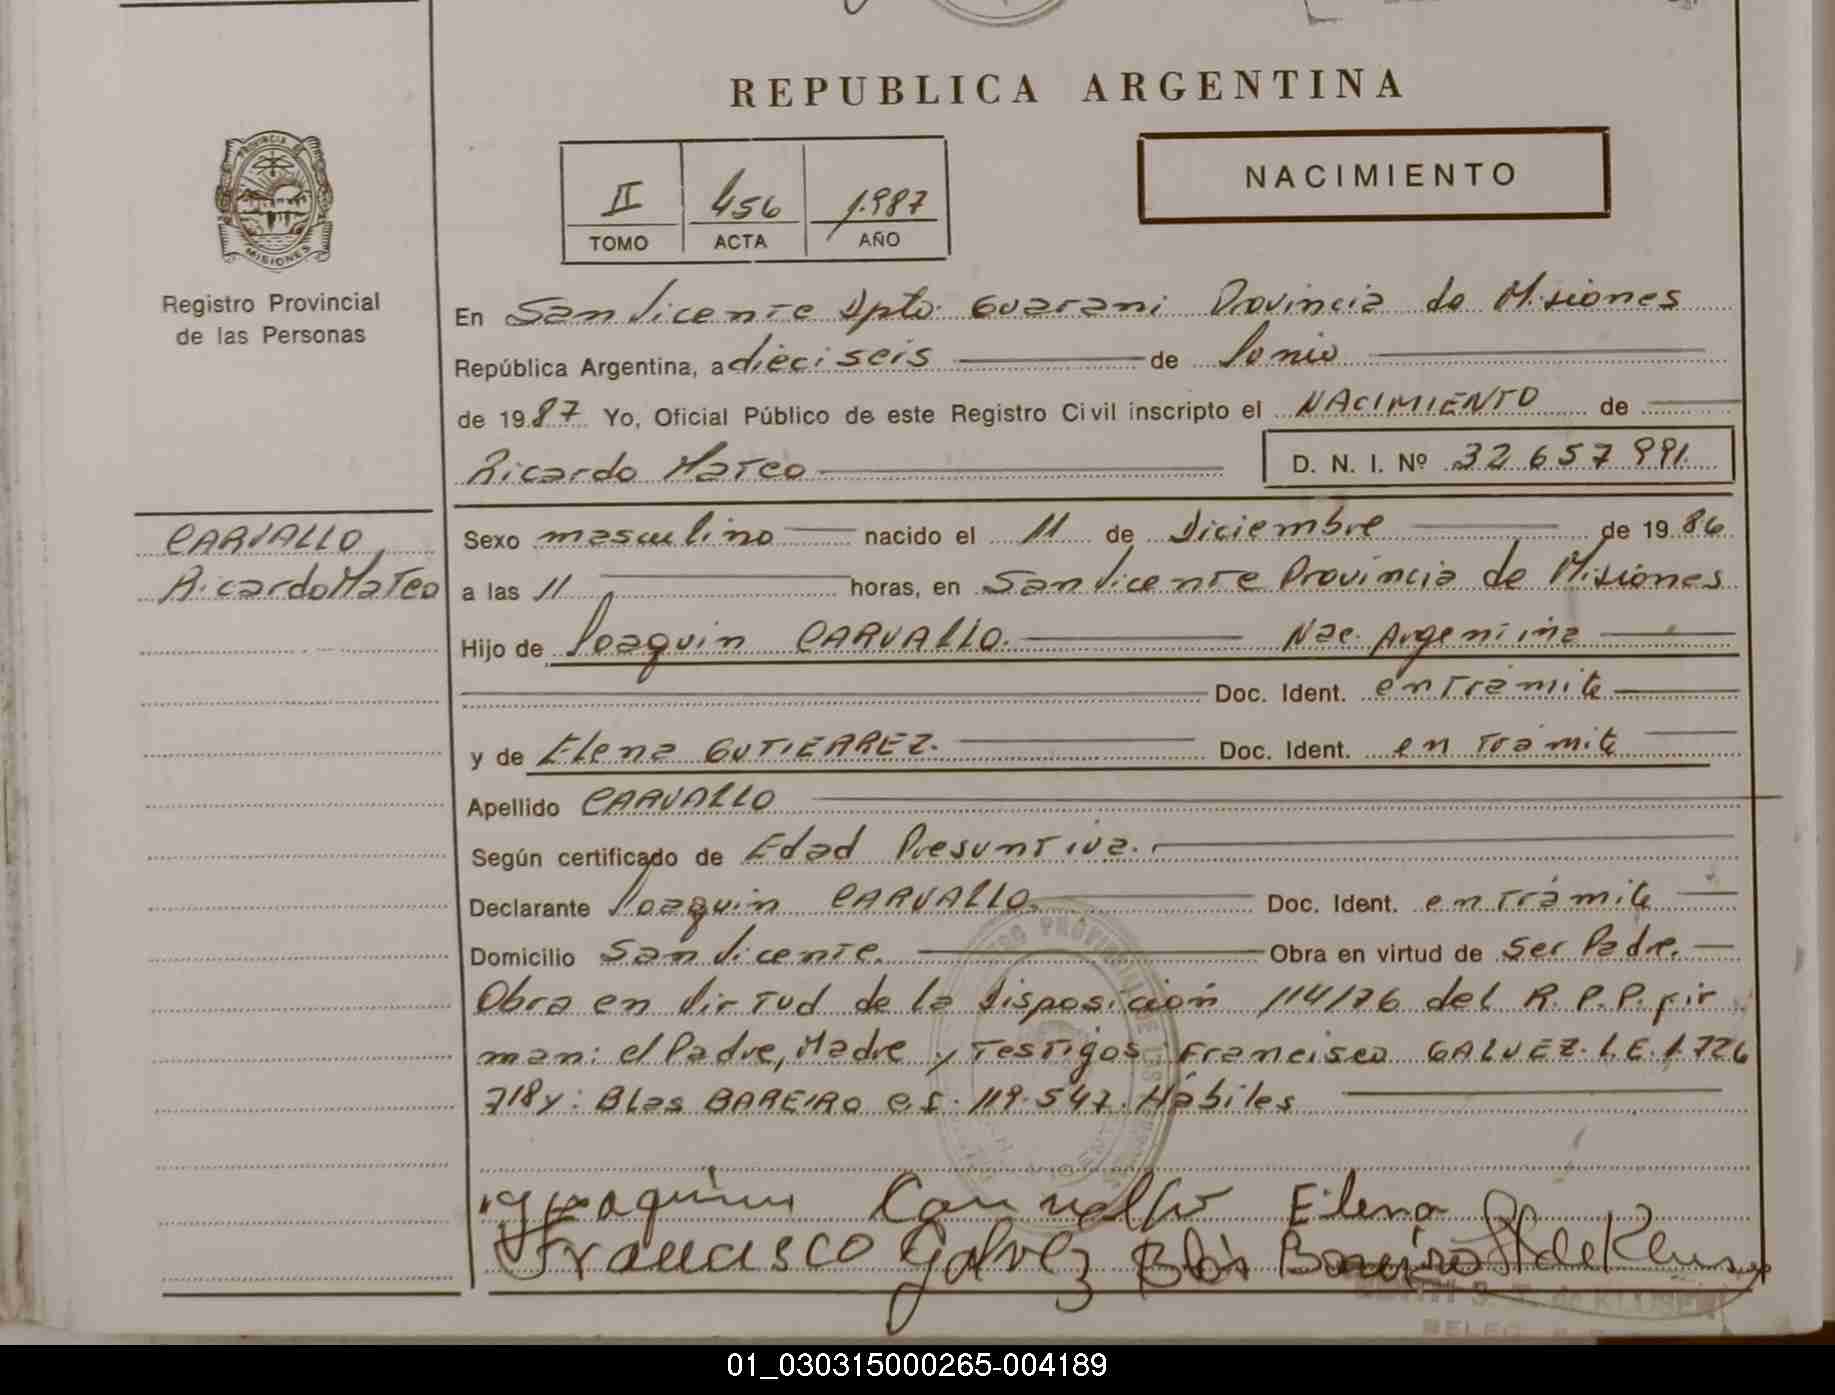 REPUBLICA ARGENTINA
NACIMIENTO
II 456 1.987
TOMO ACTA AÑO
PROVINCIA DE MISIONES
Registro Provincial
de las Personas
CARVALLO
Ricardo Mateo
En San Vicente Dpto. Guarani Provincia de Misiones
República Argentina, a dieciseis de Junio
de 1987 Yo, Oficial Público de este Registro Civil inscripto el NACIMIENTO de
Ricardo Mateo D. N. I. Nº 32.657.991.
Sexo masculino nacido el 11 de Diciembre de 1986
a las 11 horas, en San Vicente Provincia de Misiones
Hijo de Joaquin CARVALLO. Nac. Argentina
Doc. Ident. en trámite
y de Elena GUTIERREZ. Doc. Ident. en trámite
Apellido CARVALLO
Según certificado de Edad Presuntiva.
Declarante Joaquin CARVALLO. Doc. Ident. en trámite
Domicilio San Vicente. Obra en virtud de ser Padre.
Obra en Virtud de la Disposición 114/76 del R.P.P. fir
man: el Padre, Madre y Testigos Francisco GALVEZ. L.E. 1.726
718 y: Blas BAREIRO c.f. 119.547. Hábiles
Joaquin Carvallo Elena
Francisco Galvez Blas Bareiro
01_030315000265-004189